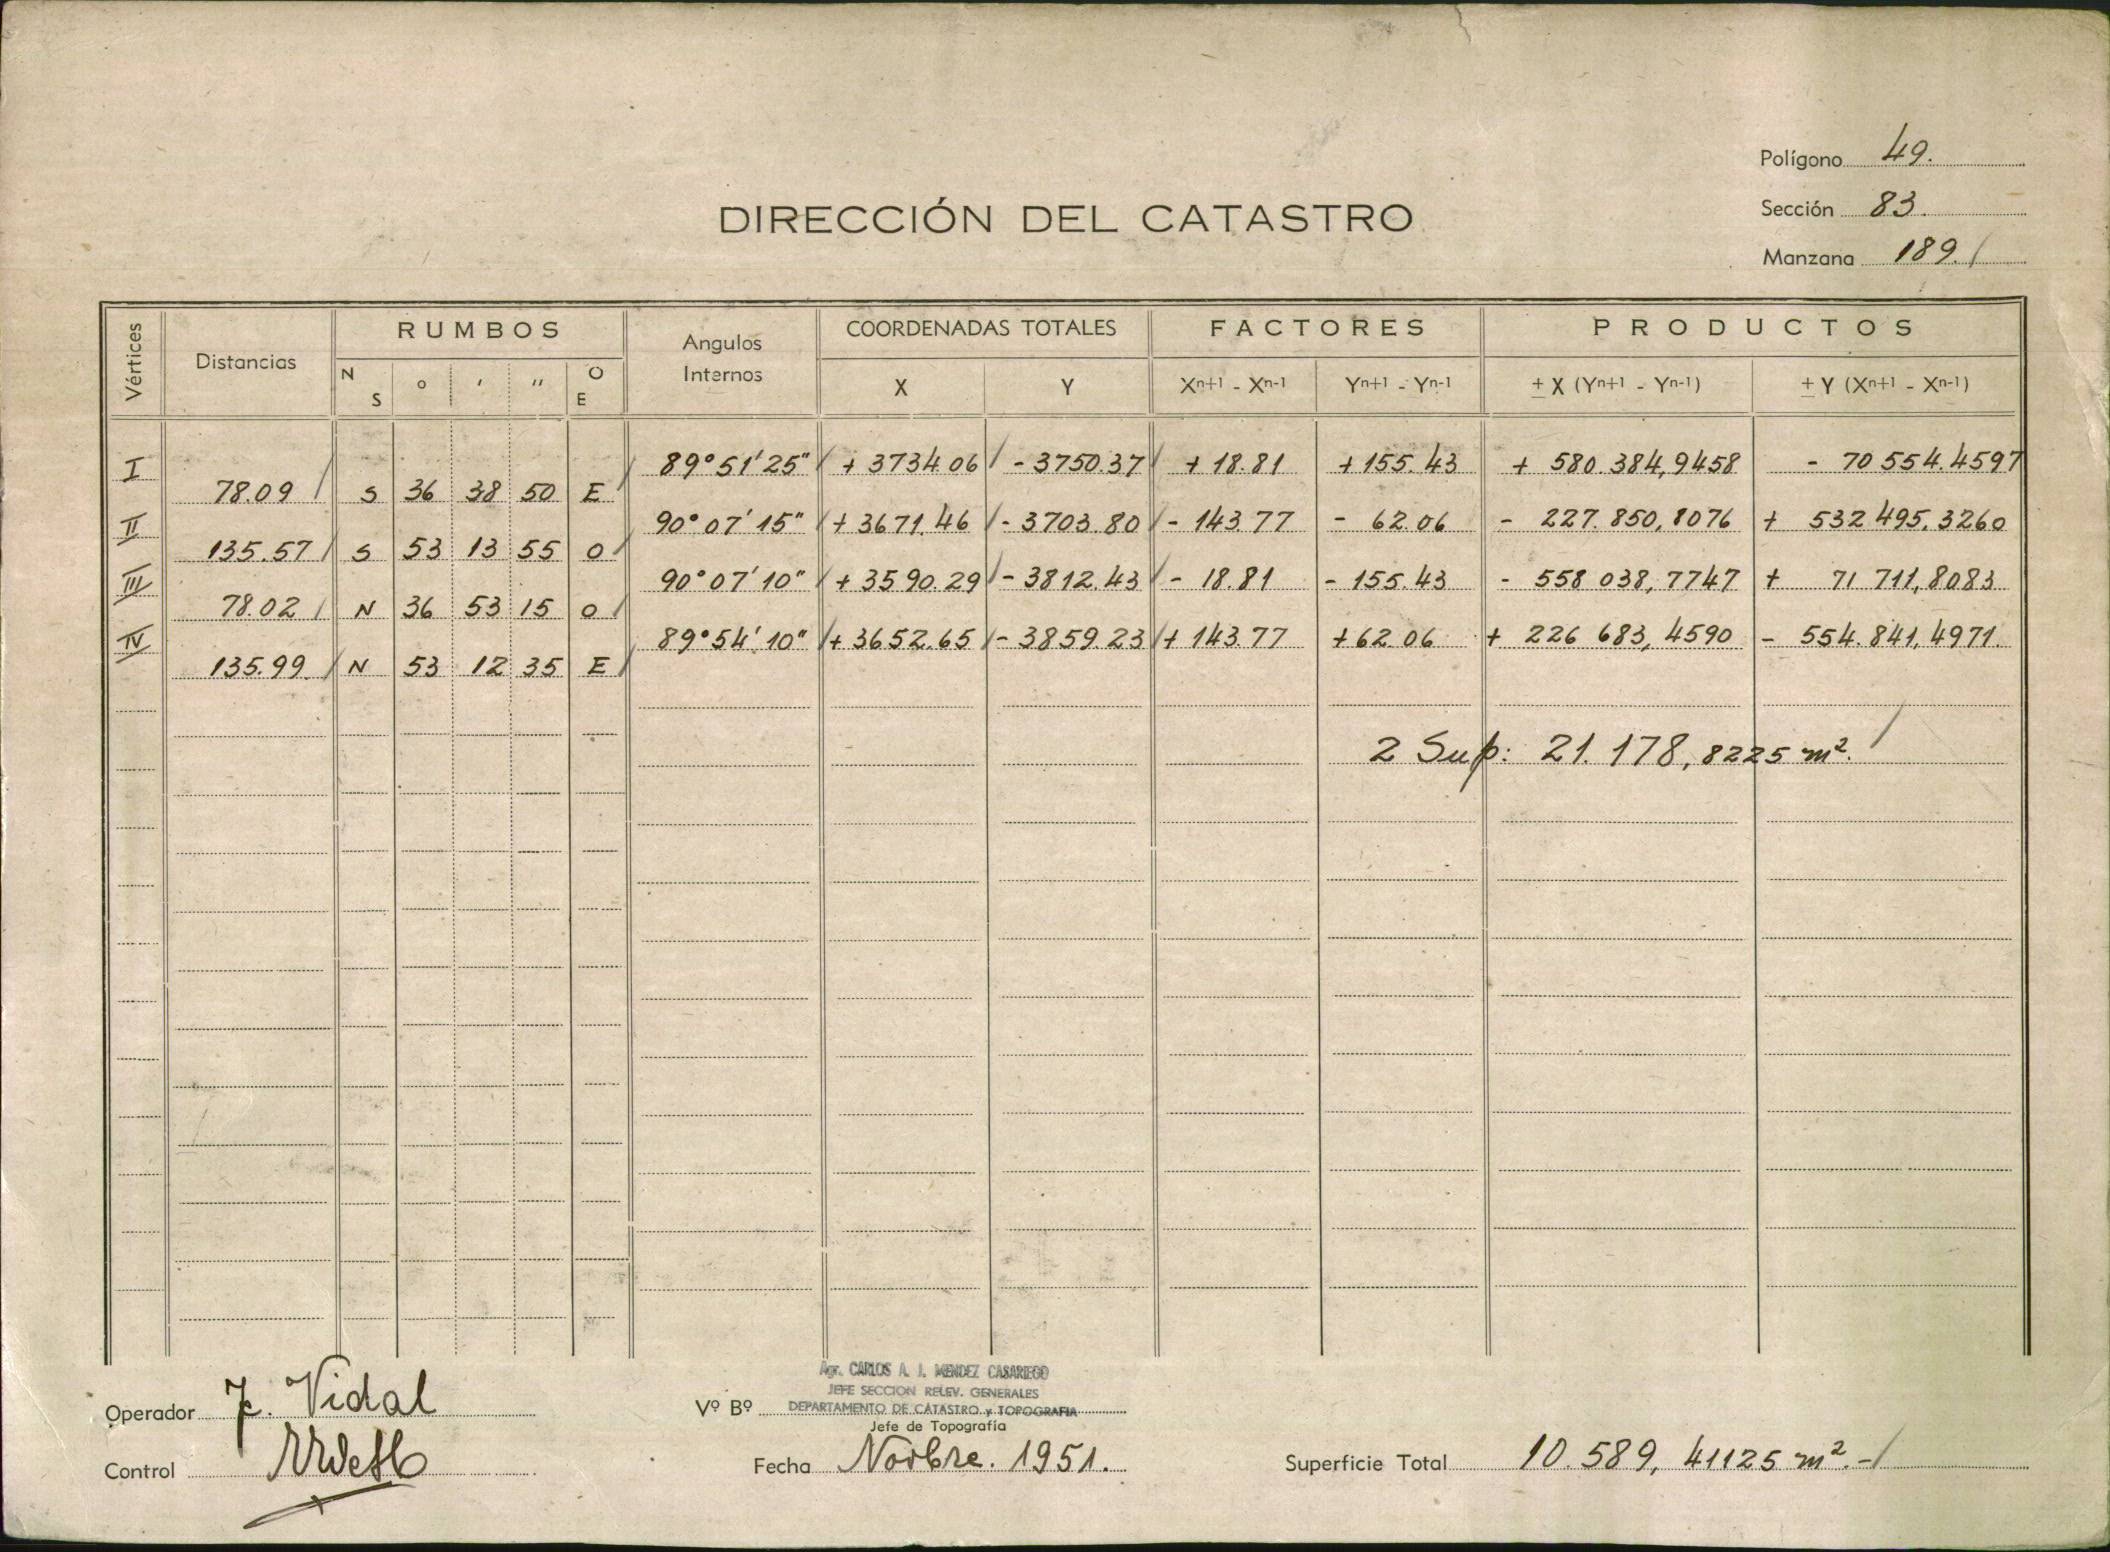 Polígono 49.
Sección 83.
Manzana 189.
DIRECCIÓN DEL CATASTRO
Vértices Distancias RUMBOS Angulos Internos COORDENADAS TOTALES FACTORES PRODUCTOS
N S ° ' " O E X Y Xn+1 - Xn-1 Yn+1 - Yn-1 ± X (Yn+1 - Yn-1) ± Y (Xn+1 - Xn-1)
I 89°51'25" + 3734.06 - 3750.37 + 18.81 + 155.43 + 580.384,9458 - 70 554.4597
78.09 S 36 38 50 E
II 90°07'15" + 3671.46 - 3703.80 - 143.77 - 62.06 - 227.850,8076 + 532 495.3260
135.57 S 53 13 55 O
III 90°07'10" + 3590.29 - 3812.43 - 18.81 - 155.43 - 558 038,7747 + 71 711,8083
78.02 N 36 53 15 O
IV 89°54'10" + 3652.65 - 3859.23 + 143.77 + 62.06 + 226 683,4590 - 554.841,4971.
135.99 N 53 12 35 E
2 Sup: 21.178,8225 m².
Agr. CARLOS A. J. MENDEZ CASARIEGO
JEFE SECCION RELEV. GENERALES
Operador J. Vidal Vº Bº DEPARTAMENTO DE CATASTRO y TOPOGRAFIA
Jefe de Topografía
Control Fecha Novbre. 1951. Superficie Total 10.589,41125 m².-